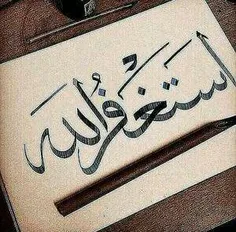 أستغفرُ الله